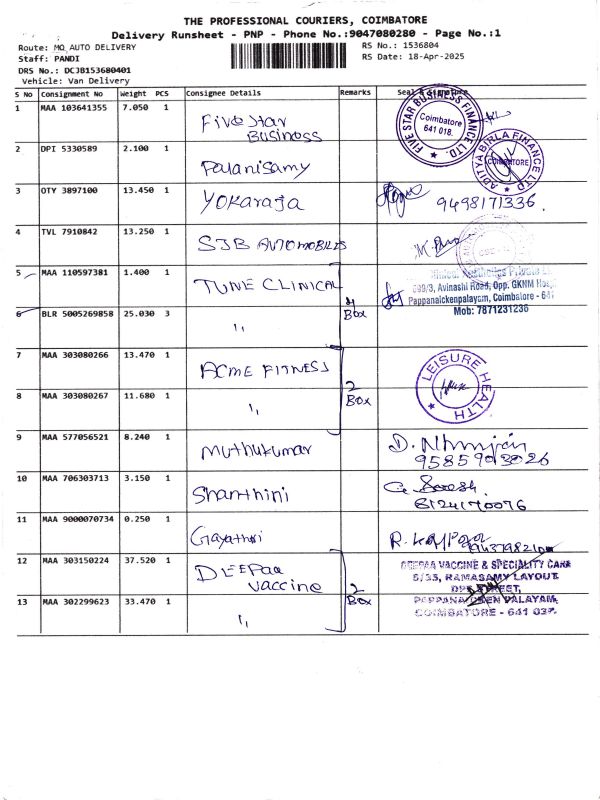 THE PROFESSIONAL COURIERS, COIMBATORE
Delivery Runsheet - PNP - Phone No.:9047080280 - Page No.:1
Route: MO AUTO DELIVERY
RS No.: 1536804
Staff: PANDI
RS Date: 18-Apr-2025
DRS No.: DCJB153680401
Vehicle: Van Delivery
S No Consignment No Weight PCS Consignee Details Remarks Seal & Signature
1 MAA 103641355 7.050 1 Five Star Business
FIVE STAR BUSINESS FINANCE LTD. ★ Coimbatore 641 018.
2 DPI 5330589 2.100 1 Palanisamy
ADITYA BIRLA FINANCE LTD ★ COIMBATORE
3 OTY 3897100 13.450 1 YOKARAJA 9498171336.
4 TVL 7910842 13.250 1 SJB AUTOMOBILES
5 MAA 110597381 1.400 1 TUNE CLINICAL
6 BLR 5005269858 25.030 3 ,, 4 Box
Private
/3, Avinashi Road, Opp. GKNM
Pappanaickenpalayam, Coimbatore - 641
Mob: 7871231236
7 MAA 303080266 13.470 1 ACME FITNESS
8 MAA 303080267 11.680 1 ,, 2 Box
LEISURE HEALTH ★
9 MAA 577056521 8.240 1 Muthukumar
10 MAA 706303713 3.150 1 Shanthini 6124170076
11 MAA 9000070734 0.250 1 Gayathri
12 MAA 303150224 37.520 1 DEEPaa vaccine
13 MAA 302299623 33.470 1 ,, 2 Box
DEEPAA VACCINE & SPECIALITY CARE
5/35, RAMASAMY LAYOUT
STREET,
PAPPANAICKEN PALAYAM,
COIMBATORE - 641 037.